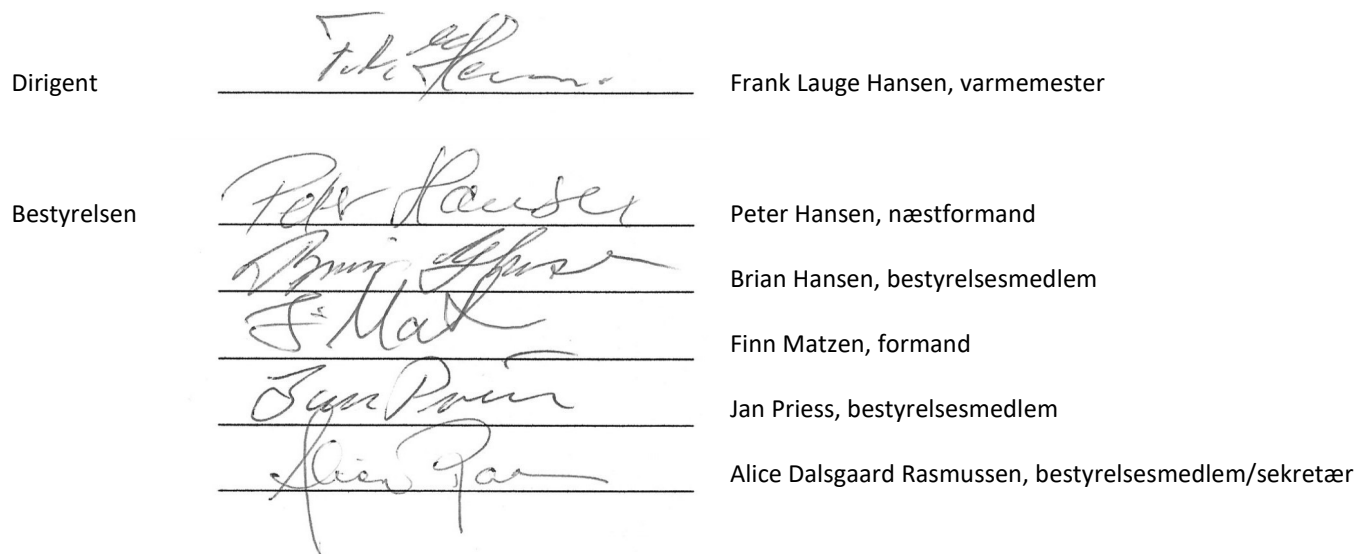 Dirigent Frank Lauge Hansen, varmemester
Bestyrelsen Peter Hansen Peter Hansen, næstformand
Brian Hansen, bestyrelsesmedlem
Finn Matzen, formand
Jan Priess, bestyrelsesmedlem
Alice Dalsgaard Rasmussen, bestyrelsesmedlem/sekretær